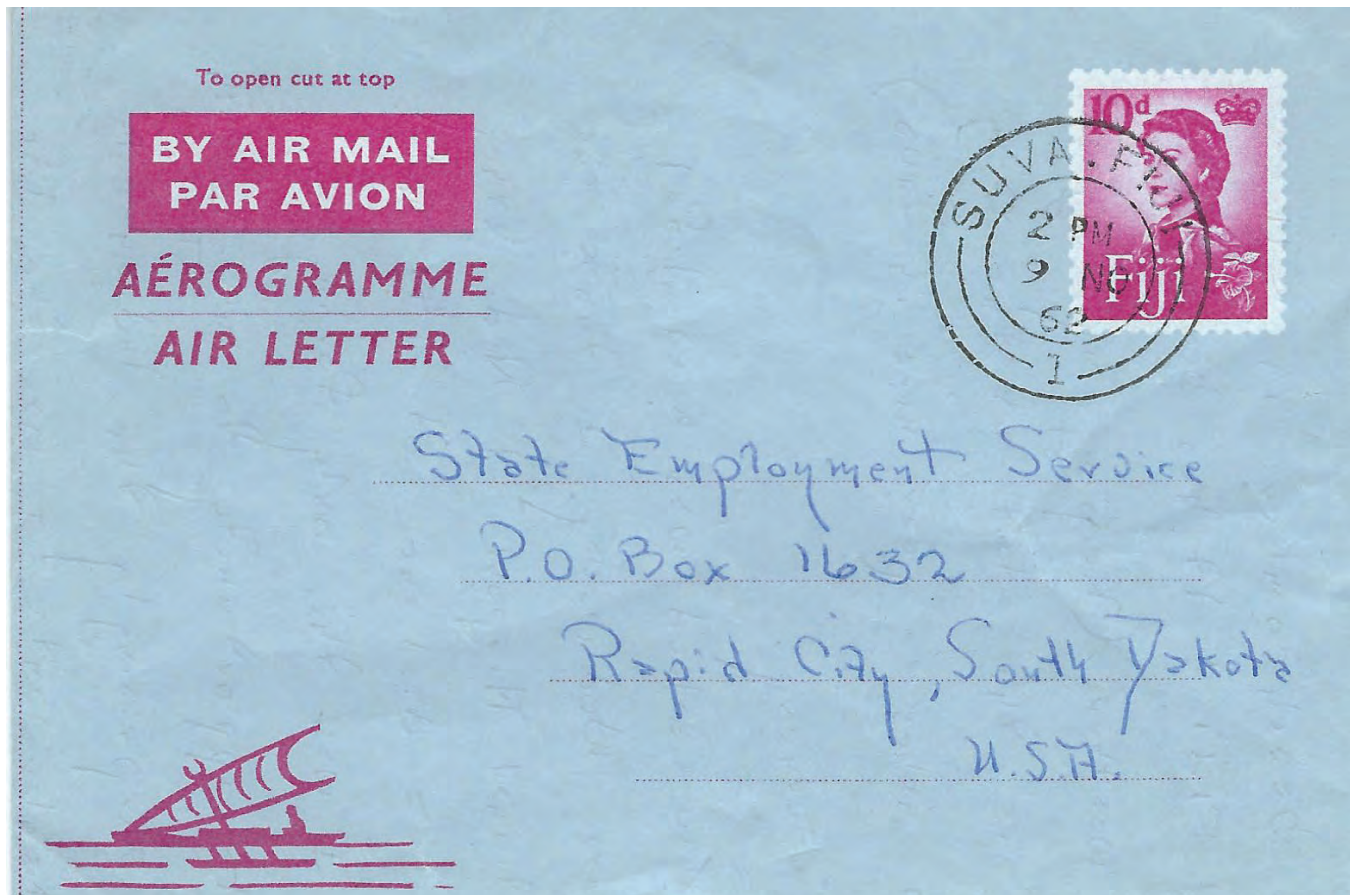 To open cut at top
BY AIR MAIL
PAR AVION
AÉROGRAMME
AIR LETTER
10d
Fiji
SUVA. FIJI
2 PM
9 NO
62
1
State Employment Service
P.O. Box 1632
Rapid City, South Dakota
U.S.A.